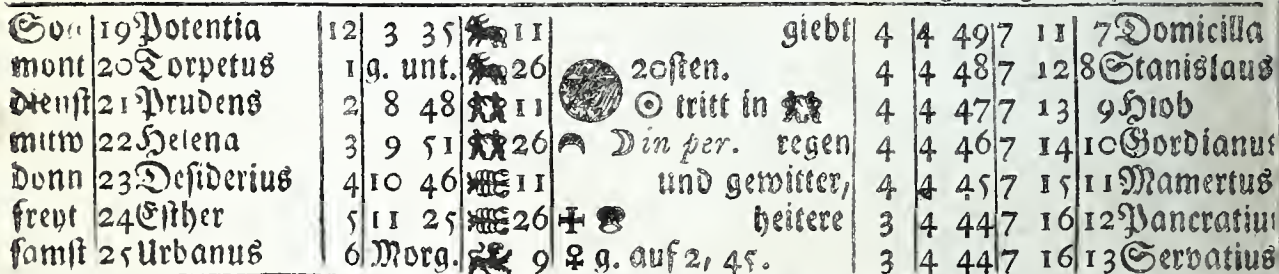 Son 19 Potentia 12 3 35 11 giebt 4 4 49 7 11 7 Domicilla
mont 20 Torpetus 1 g. unt. 26 20sten. 4 4 48 7 12 8 Stanislaus
dienst 21 Prudens 2 8 48 11 ☉ tritt in 4 4 47 7 13 9 Hiob
mittw 22 Helena 3 9 51 26 ☽ in per. regen 4 4 46 7 14 10 Gordianus
donn 23 Desiderius 4 10 46 11 und gewitter, 4 4 45 7 15 11 Mamertus
freyt 24 Esther 5 11 25 26 heitere 3 4 44 7 16 12 Pancratiu
samst 25 Urbanus 6 Morg. 9 ♀ g. auf 2, 45. 3 4 44 7 16 13 Servatius